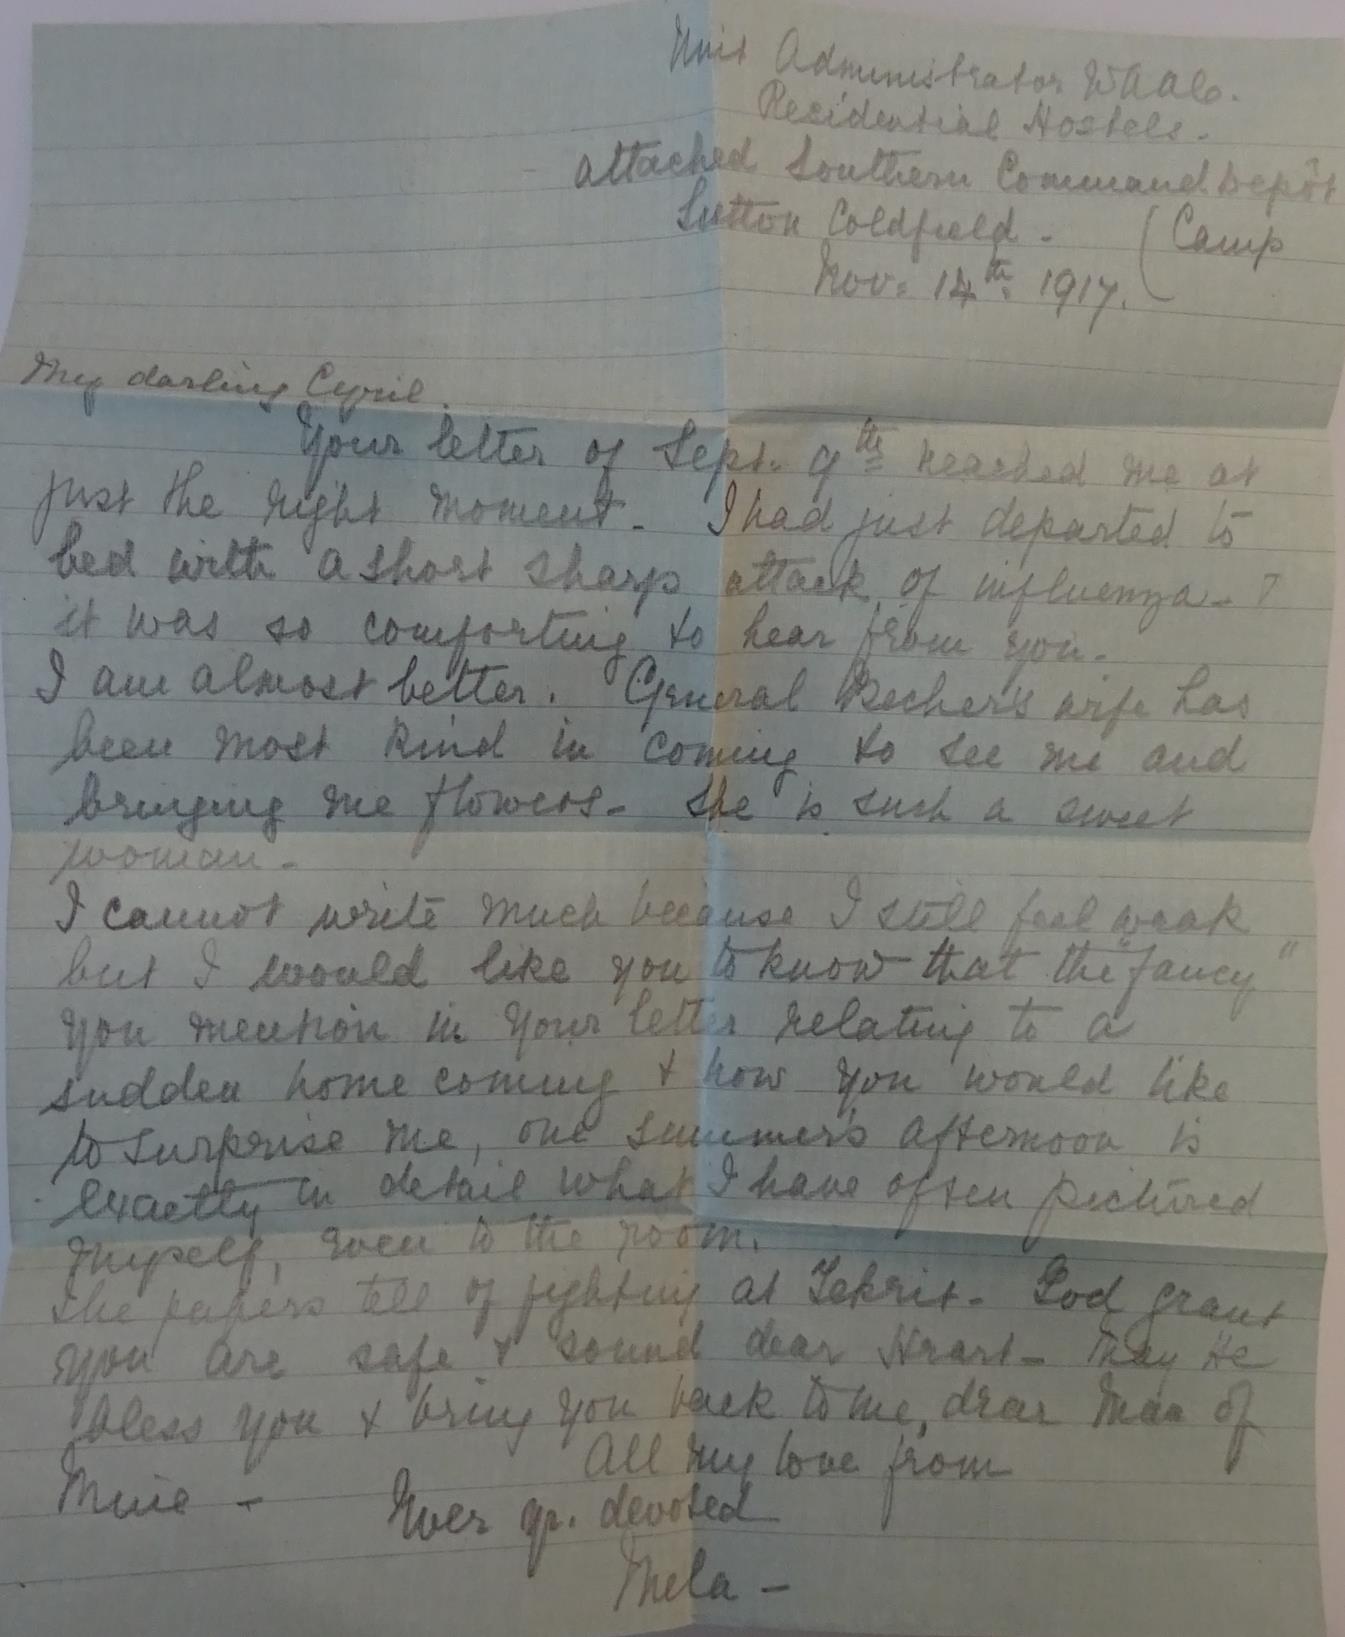 Unit Administrator WAAC.
Residential Hostels.
attached Southern Command Depôt
Sutton Coldfield - (Camp
Nov. 14th. 1917.
My darling Cyril.
Your letter of Sept. 9th reached me at
just the right moment. I had just departed to
bed with a short sharp attack of influenza -
it was so comforting to hear from you.
I am almost better. General Becher's wife has
been most kind in coming to see me and
bringing me flowers - She is such a sweet
woman -
I cannot write much because I still feel weak
but I would like you to know that the "fancy"
you mention in your letter relating to a
sudden home coming & how you would like
to surprise me, one summer's afternoon is
exactly in detail what I have often pictured
myself, even to the room.
The papers tell of fighting at Tekrit - God grant
you are safe & sound dear Heart - May He
bless you & bring you back to me, dear Man of
Mine -
All my love from
Ever yr. devoted
Mela -